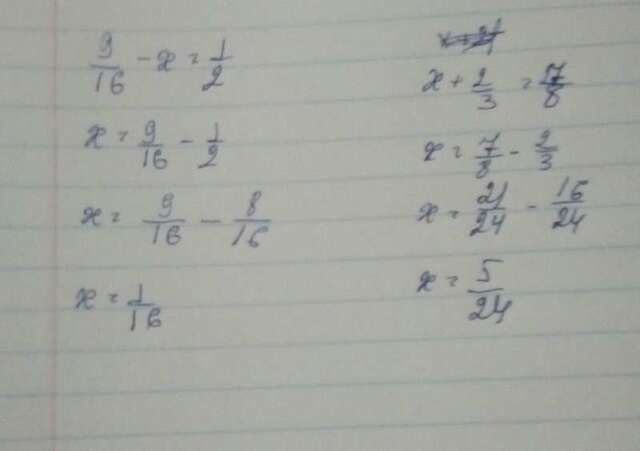 9/16 - x = 1/2
x = 9/16 - 1/2
x = 9/16 - 8/16
x = 1/16
x + 2/3 = 7/8
x = 7/8 - 2/3
x = 21/24 - 16/24
x = 5/24